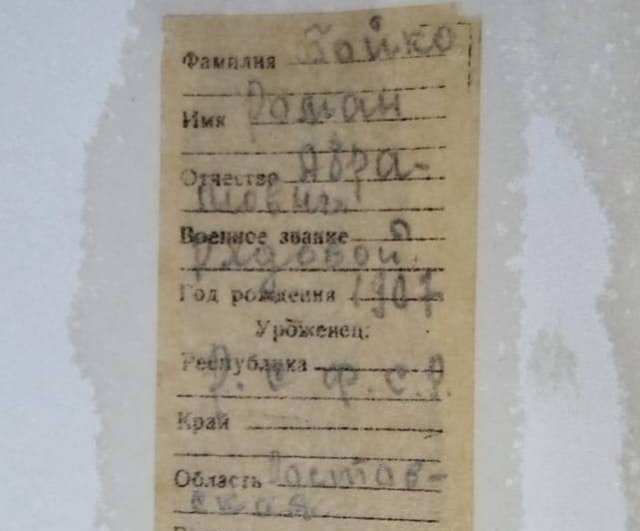 Фамилия Бойко
Имя Роман
Отчество Абра-
мович
Военное звание
рядовой
Год рождения 1907
Уроженец:
Республика
Р.С.Ф.С.Р.
Край
Область Ростов-
ская